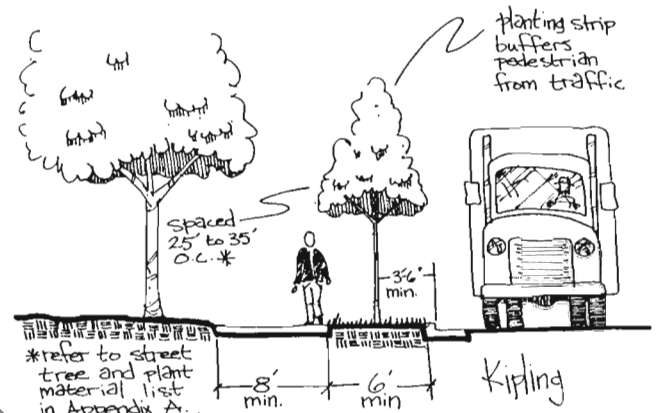 planting strip
buffers
pedestrian
from traffic
spaced
25' to 35'
O.C. *
3'-6"
min.
*refer to street
tree and plant
material list
in Appendix A.
8'
min.
6'
min.
Kipling